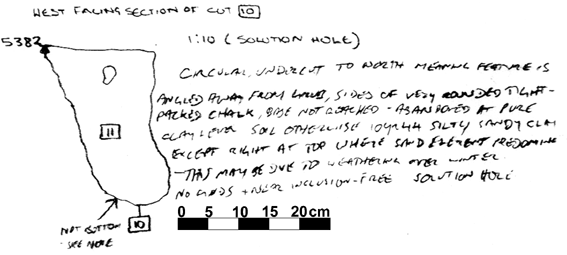 WEST FACING SECTION OF CUT 10
5382
1:10 (SOLUTION HOLE)
CIRCULAR, UNDERCUT TO NORTH MEANING FEATURE IS
ANGLED AWAY FROM , SIDES OF VERY ROUNDED TIGHT-
PACKED CHALK, BASE NOT REACHED - ABANDONED AT PURE
CLAY LEVEL SOIL OTHERWISE 10YR4/4 SILTY SANDY CLAY
EXCEPT RIGHT AT TOP WHERE SAND ELEMENT PREDOMINE
- THIS MAY BE DUE TO WEATHERING OVER WINTER
NO FINDS + NEAR INCLUSION-FREE SOLUTION HOLE
11
NOT BOTTOM
- SEE NOTE
10
0 5 10 15 20cm